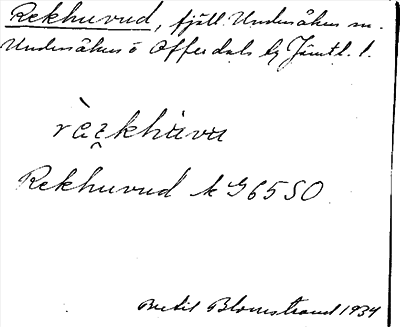 Rekhuvud, fjäll. Undersåkers sn.
Undersåkers o Offerdals lg Jämtl. l.
Rekhuvud k G65SO
Bertil Blomstrand 1934